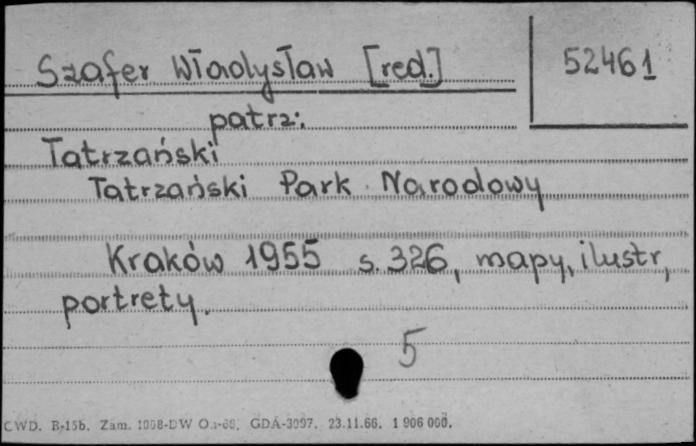 Szafer Władysław [red.]
52461
patrz:
Tatrzański
Tatrzański Park Narodowy
Kraków 1955 s. 326, mapy, ilustr,
portrety.
5
CWD. B-15b. Zam. 1008-DW GDA-3097. 23.11.66. 1 906 000.